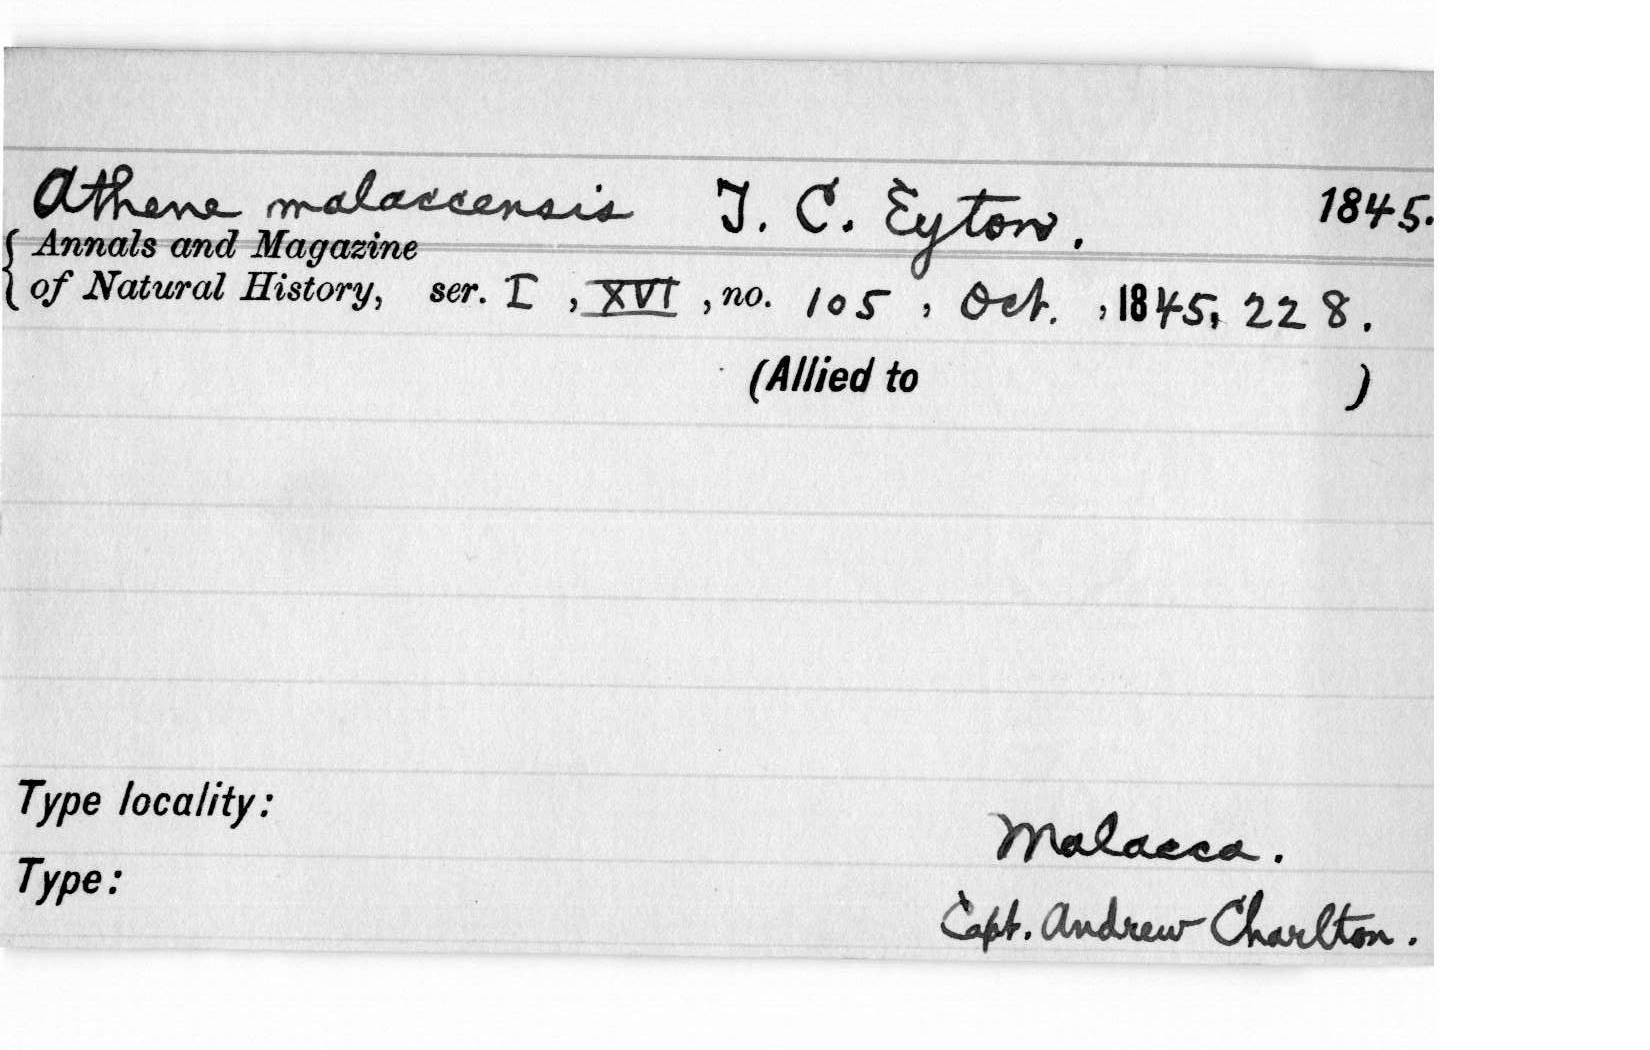 Athene malaccensis T. C. Eyton. 1845.
Annals and Magazine
of Natural History, ser. I, XVI, no. 105, Oct., 1845, 228.
(Allied to )
Type locality:
Malacca.
Type:
Capt. Andrew Charlton.